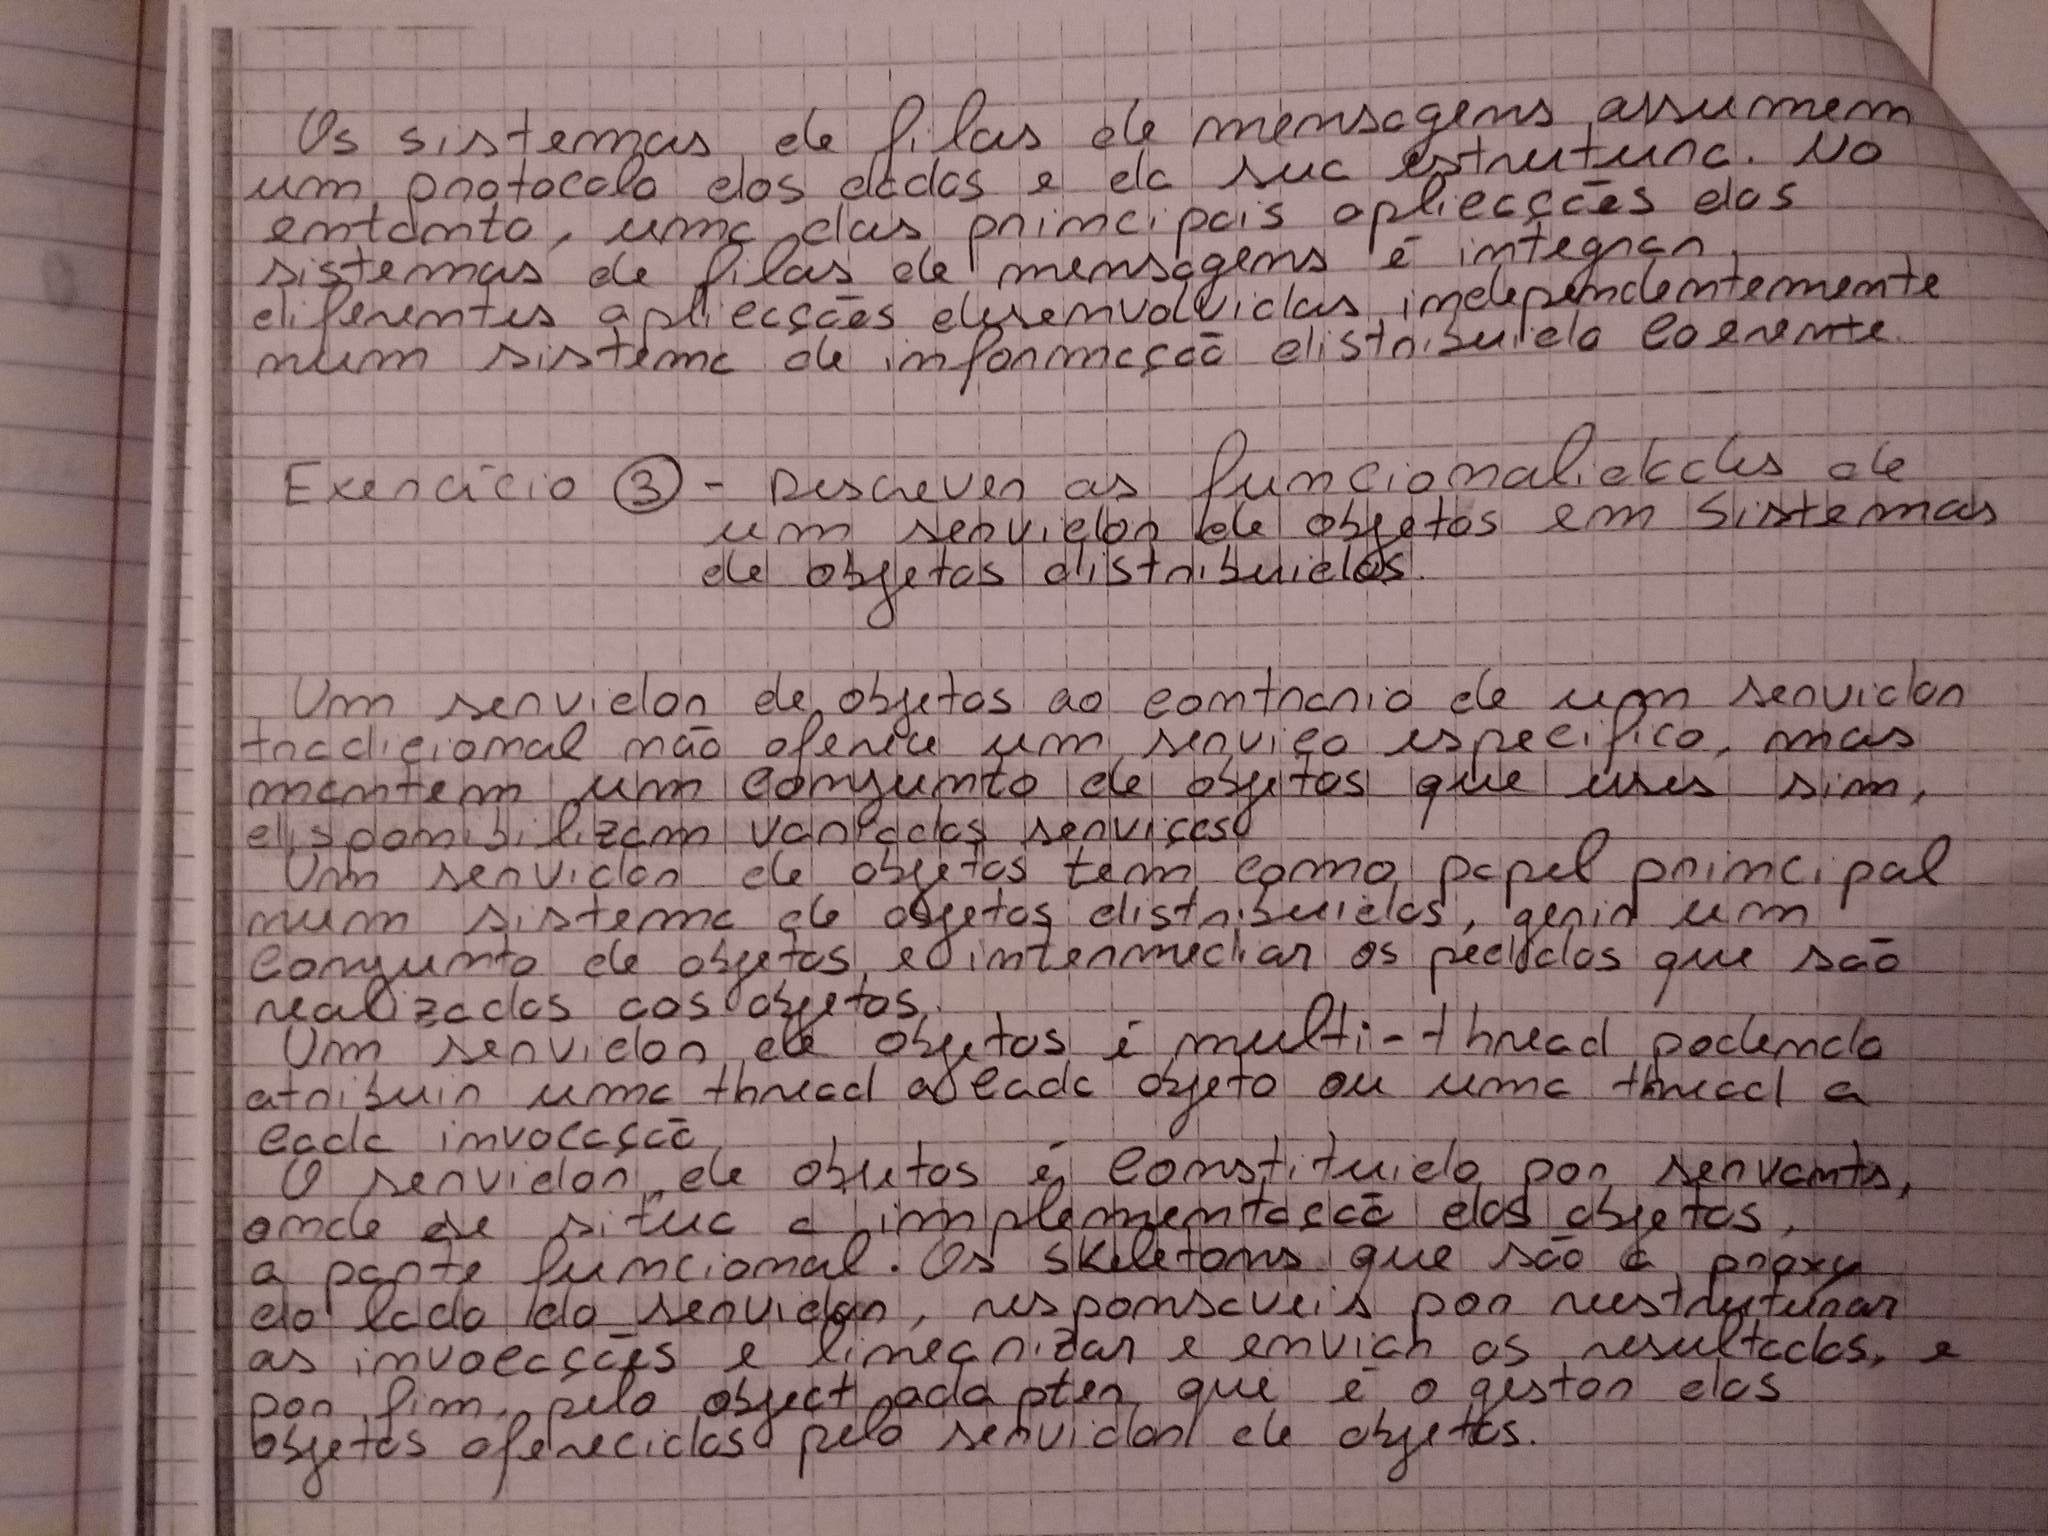 Os sistemas de filas de mensagens assumem
um protocolo dos dados e da sua estrutura. No
entanto, uma das principais aplicações dos
sistemas de filas de mensagens é integrar
diferentes aplicações desenvolvidas independentemente
num sistema de informação distribuido coerente.
Exercício 3 - Descrever as funcionalidades de
um servidor de objetos em sistemas
de objetos distribuidos.
Um servidor de objetos ao contrario de um servidor
tradicional não oferece um serviço especifico, mas
mantem um conjunto de objetos que esses sim,
disponibilizam variados serviços
Um servidor de objetos tem como papel principal
num sistema de objetos distribuidos, gerir um
conjunto de objetos e intermediar os pedidos que são
realizados aos objetos.
Um servidor de objetos é multi-thread podendo
atribuir uma thread a cada objeto ou uma thread a
cada invocação
O servidor de objetos é constituido por servants,
onde se situa a implementação dos objetos,
a parte funcional. Os skeletons que são a proxy
do lado do servidor, responsaveis por reestruturar
as invocações e linearizar e enviar os resultados, e
por fim, pelo object adapter que é o gestor dos
objetos oferecidos pelo servidor de objetos.